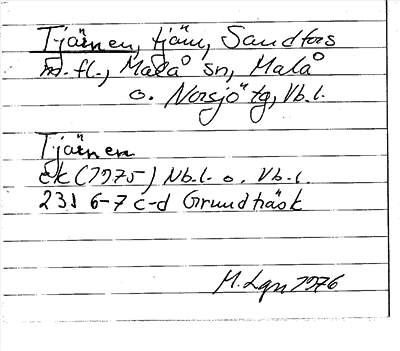 Tjärnen, tjärn, Sandfors
m. fl., Malå sn, Malå
o. Norsjö tg, Vb. l.
Tjärnen
Ek (1975) Nb. l. o. Vb. l.
23J 6-7 c-d Grundträsk
M. Lgn 1976